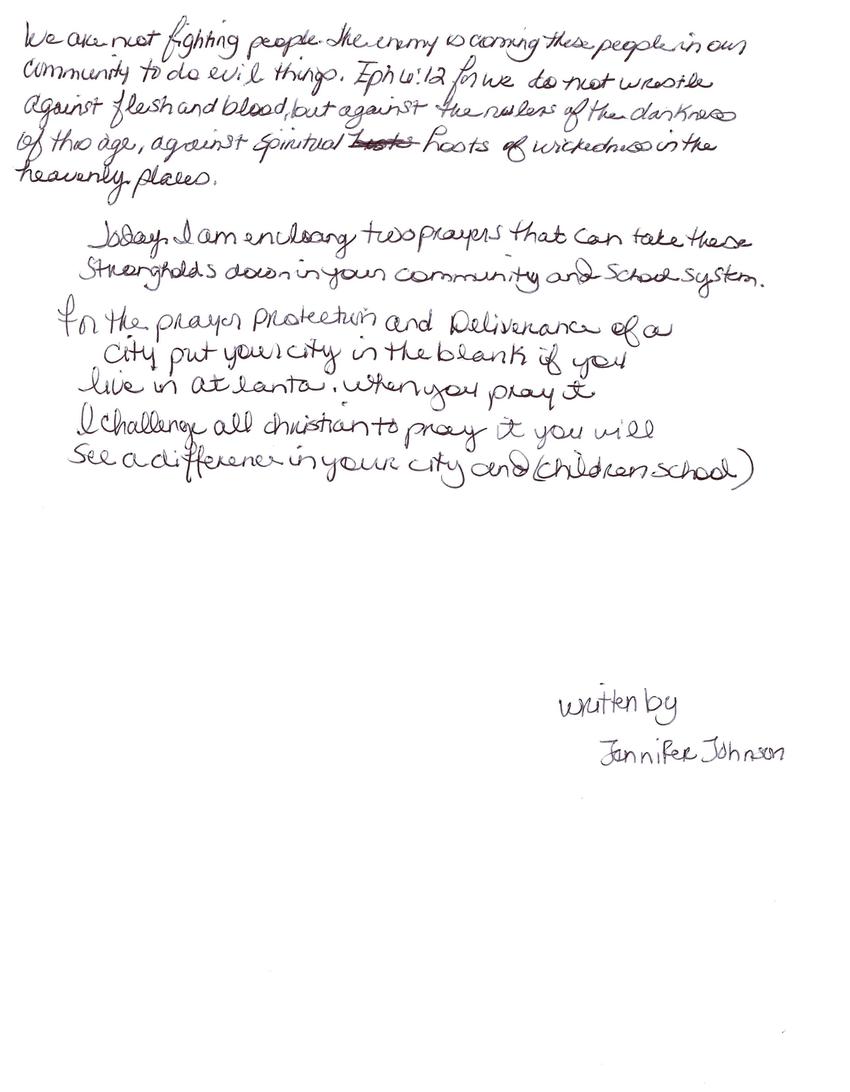 We are not fighting people. The enemy is coming these people in our
community to do evil things. Eph 6:12 for we do not wrestle
against flesh and blood, but against the rulers of the darkness
of this age, against spiritual hosts of wickedness in the
heavenly places.
Today I am enclosing two prayers that can take these
strongholds down in your community and School system.
for the prayer protection and Deliverance of a
city put your city in the blank if you
live in atlanta. when you pray it
I challenge all christian to pray it you will
See a difference in your city and (children school)
written by
Jennifer Johnson